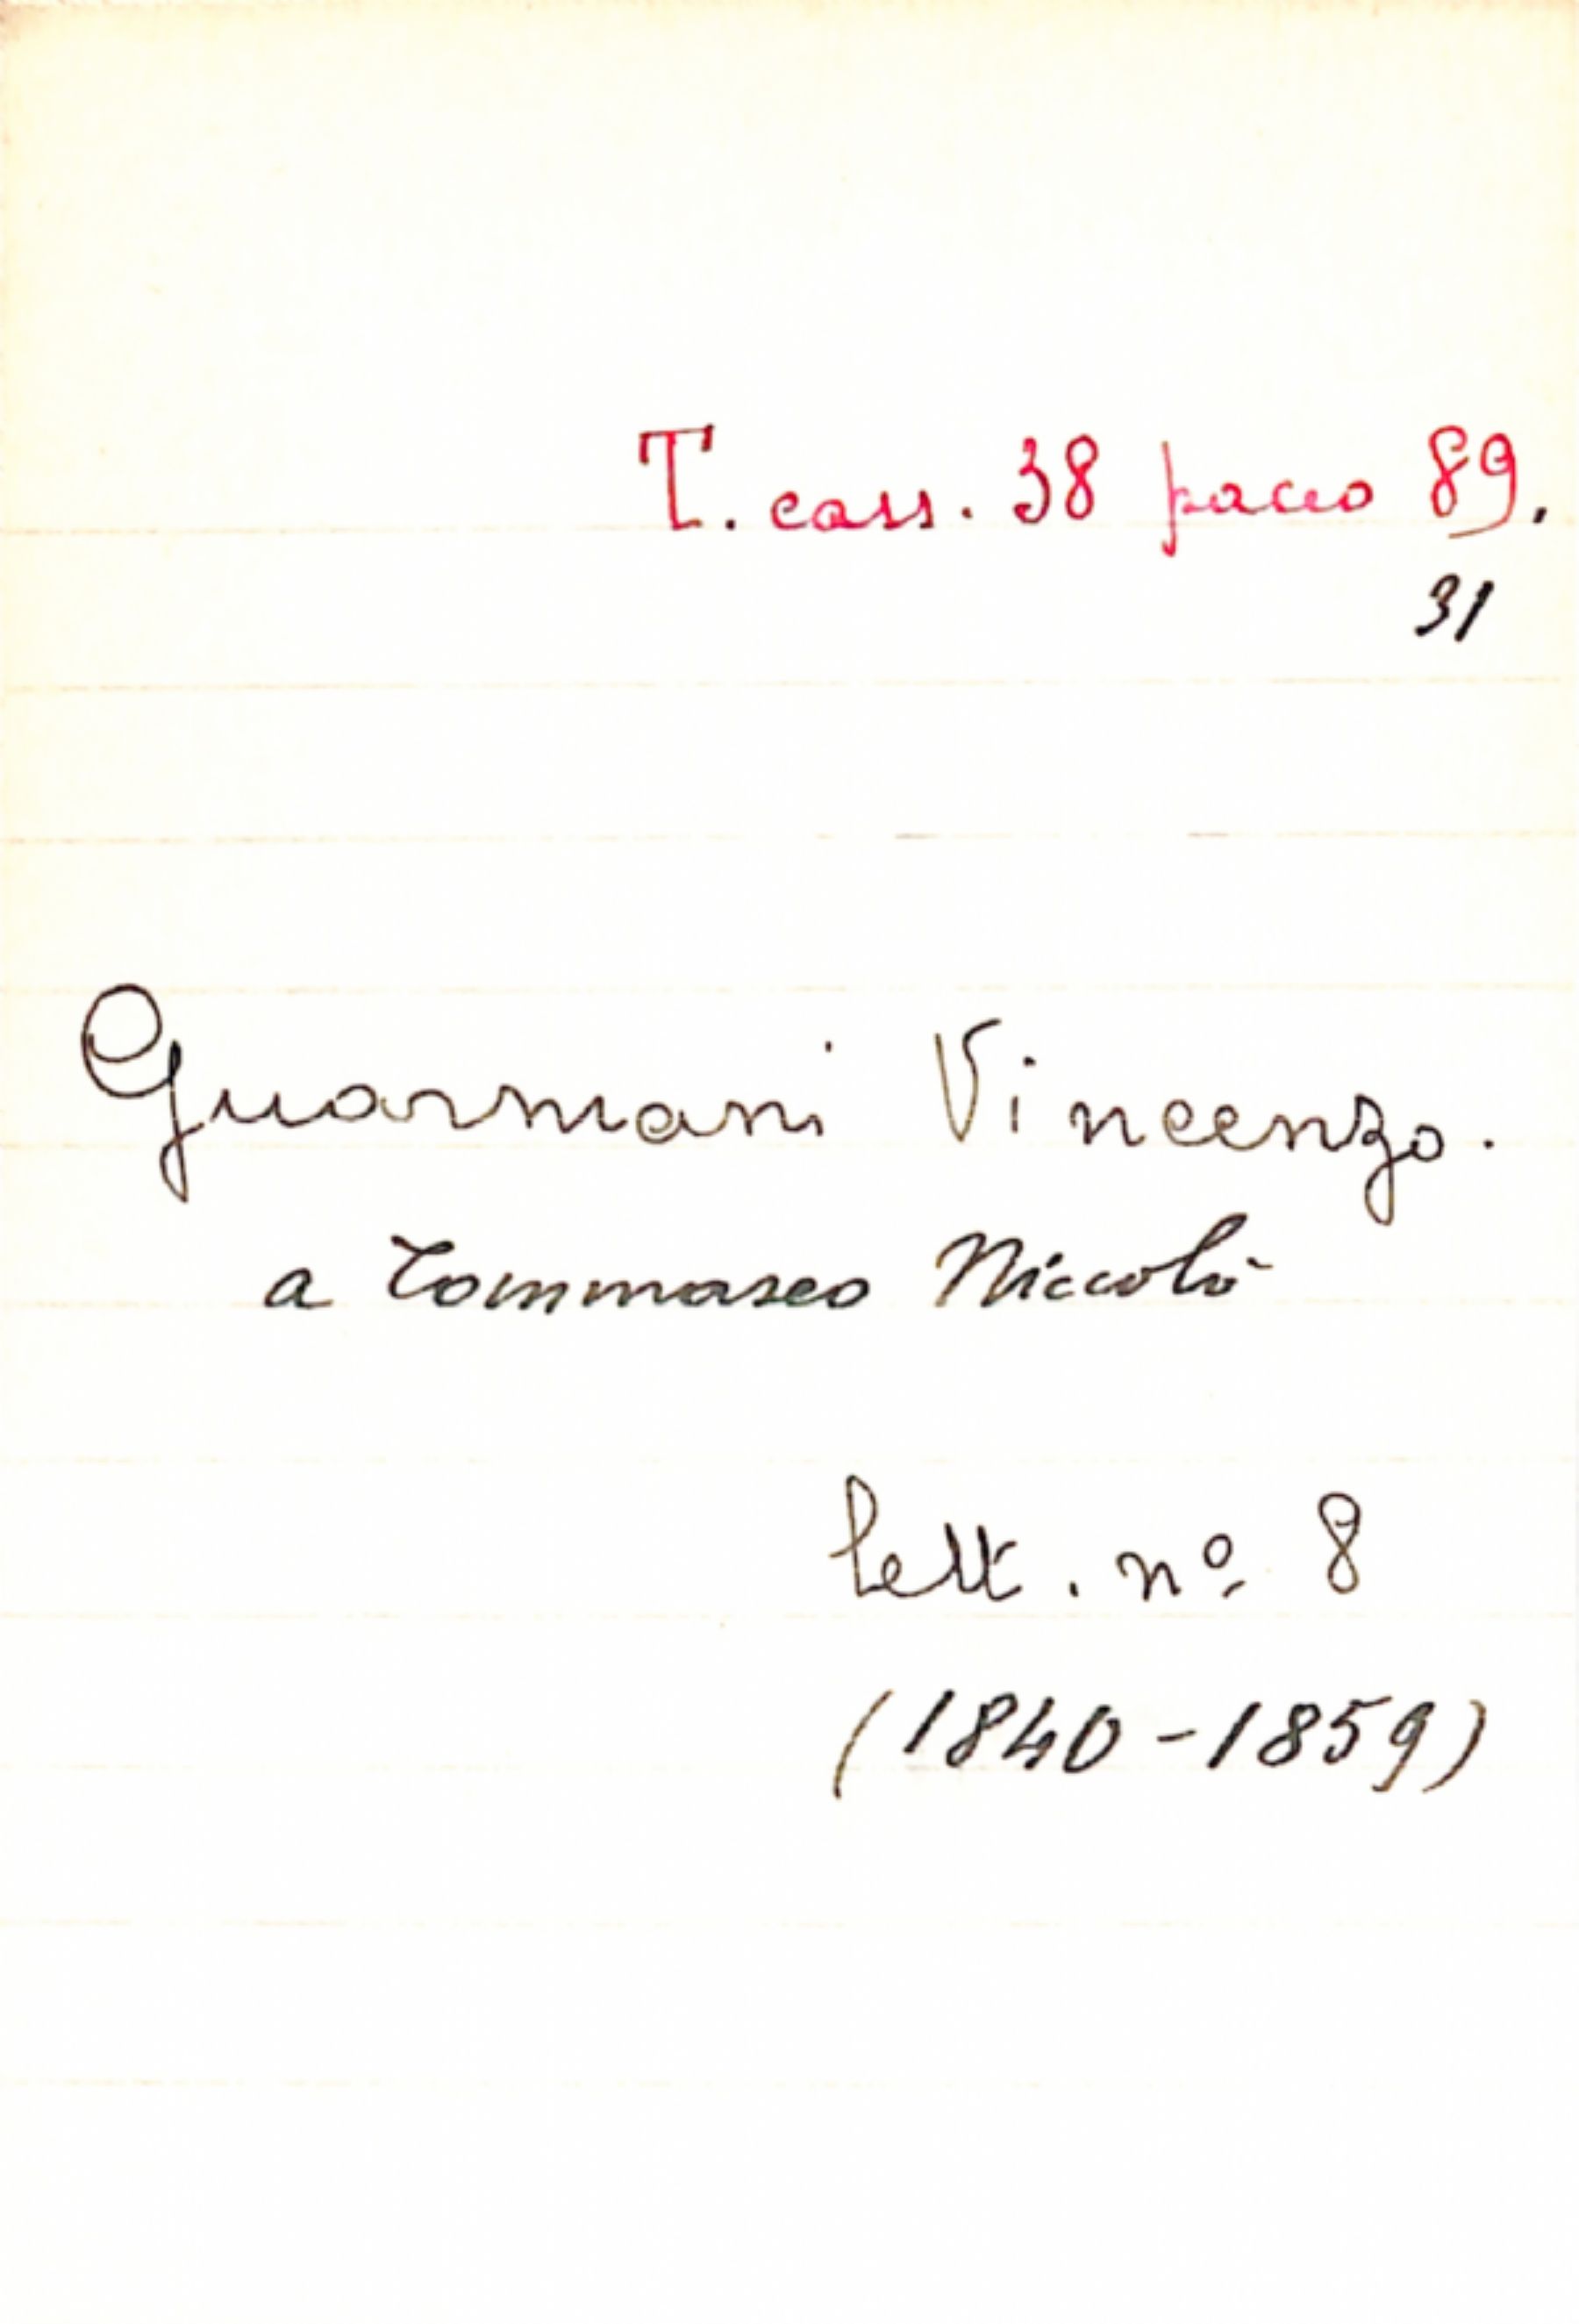 T. cass. 38 pacco 89.
31
Guarmani Vincenzo.
a Tommaseo Niccolò
lett. nº 8
(1840-1859)